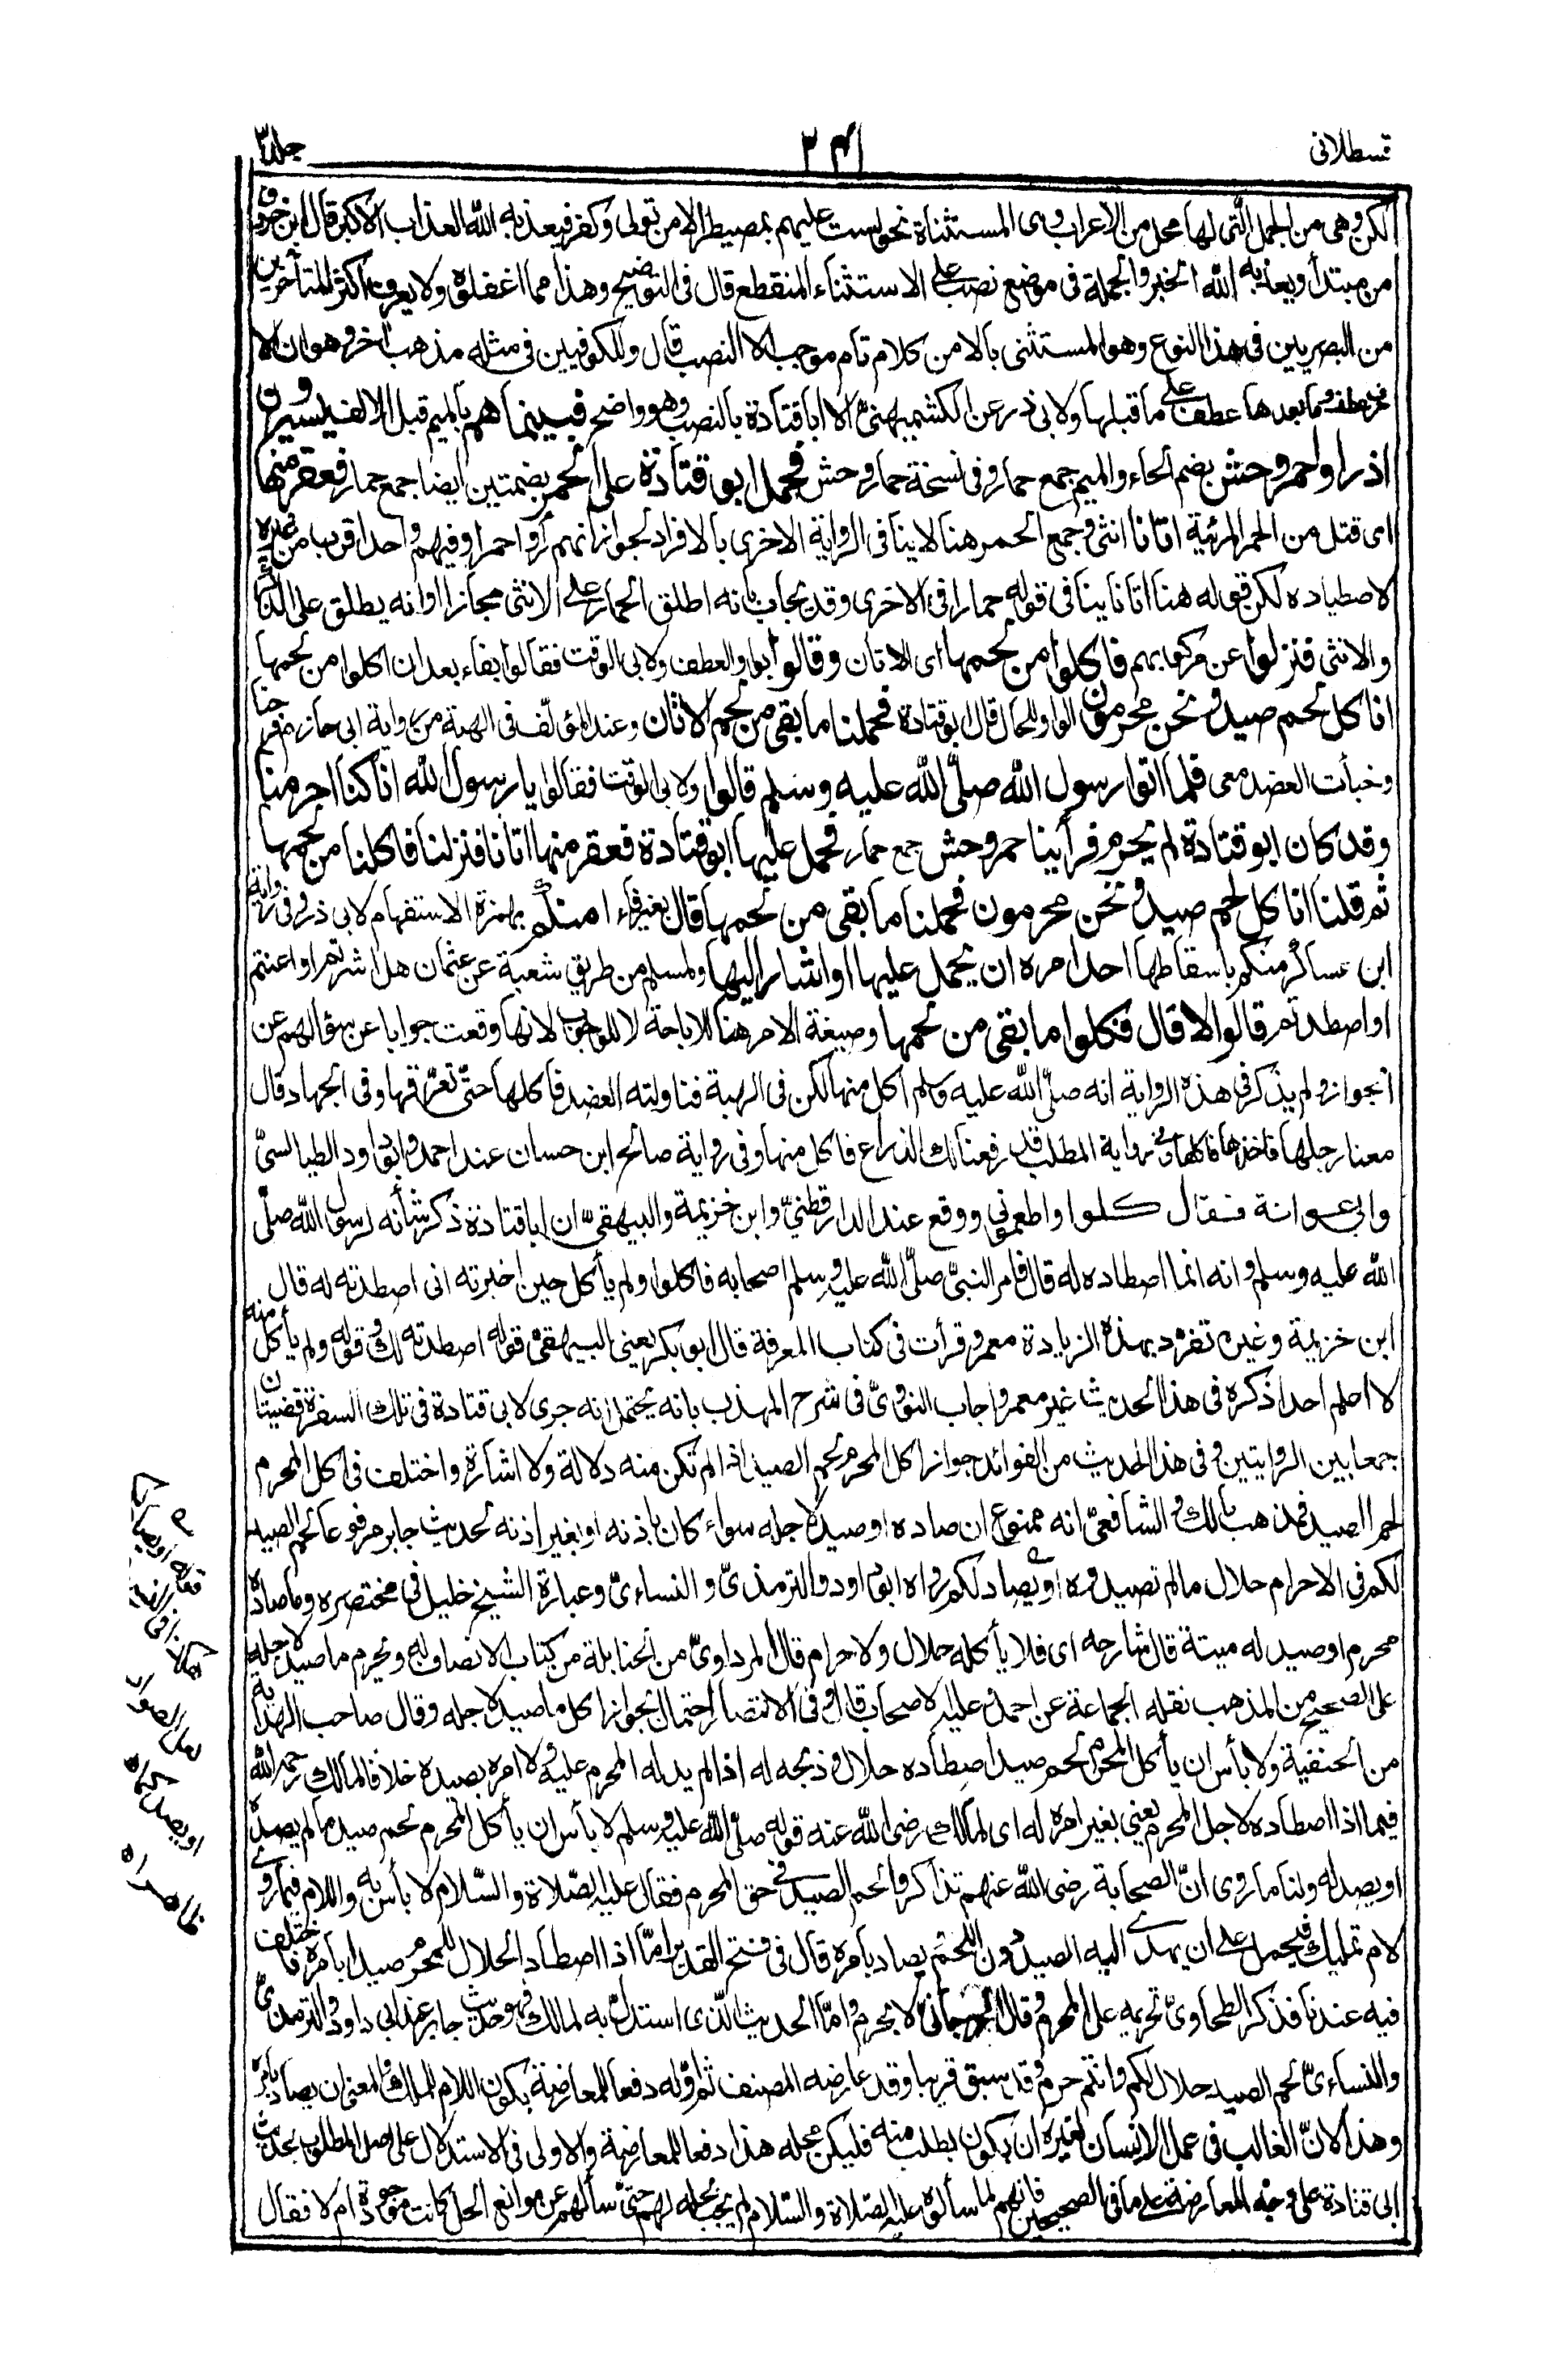 قسطلانى
٢٤١
جلد٣
لكن وهى من الجمل التى لها محل من الاعراب وهى المستثناة نحو لست عليهم بمصيطر الا من تولى وكفر فيعذبه الله العذاب الاكبر قال ابن خروف
من مبتدأ ويعذبه الله الخبر والجملة فى موضع نصب على الاستثناء المنقطع قال فى التوضيح وهذا مما اغفلوه ولا يعرف اكثر المتأخرين
من البصريين فى هذا النوع وهو المستثنى بالا من كلام تام موجب الا النصب قال وللكوفيين فى مثله مذهب اخر وهو ان الا
حرف عطف وما بعدها عطف على ما قبلها ولابى ذر عن الكشميهنىّ الا ابا قتادة بالنصب وهو واضح فبينما هم بالميم قبل الالف يسيرون
اذ راوا حمر وحش بضم الحاء والميم جمع حمار وفى نسخة حمار وحش فحمل ابو قتادة على الحمر بضمتين ايضا جمع حمار فعقر منها
اى قتل من الحمر المرئية اتانا انثى وجمع الحمر هنا لا ينافى الرواية الاخرى بالافراد لجواز انهم رأوا حمرا وفيهم واحدا قرب من غيره
لاصطياده لكن قوله هنا اتانا ينافى قوله حمارا فى الاخرى وقد يجاب بانه اطلق الحمار على الانثى مجازا او انه يطلق على الذكر
والانثى فنزلوا عن مركوبهم فاكلوا من لحمها اى الاتان وقالوا بواو العطف ولابى الوقت فقالوا بفاء بعد ان اكلوا من لحمها
اناكل لحم صيد ونحن محرمون الواو للحال قال ابو قتادة فحملنا ما بقى من لحم الاتان وعند المؤلف فى الهبة من رواية ابى حازم فرحنا
وخبأت العضد معى فلما اتوا رسول الله صلّى الله عليه وسلم قالوا ولابى الوقت فقالوا يا رسول الله انا كنا احرمنا
وقد كان ابو قتادة لم يحرم فرأينا حمر وحش جمع حمار فحمل عليها ابو قتادة فعقر منها اتانا فنزلنا فاكلنا من لحمها
ثم قلنا اناكل لحم صيد ونحن محرمون فحملنا ما بقى من لحمها قال بغير فاء امنكم بهمزة الاستفهام لابى ذر وفى رواية
ابن عساكر منكم باسقاطها احد امره ان يحمل عليها او اشار اليها ولمسلم من طريق شعبة عن عثمان هل اشرتم او اعنتم
او اصطدتم قالوا لا قال فكلوا ما بقى من لحمها وصيغة الامر هنا للاباحة لا للوجوب لانها وقعت جوابا عن سؤالهم عن
الجواز ولم يذكر فى هذه الرواية انه صلّى الله عليه وسلم اكل منها لكن فى الهبة فناولته العضد فاكلها حتى تعرّقها وفى الجهاد قال
معنا رجلها فاخذها فاكلها وفى رواية المطلب قد رفعنا لك الذراع فاكل منها وفى رواية صالح ابن حسان عند احمد وابى داود الطيالسىّ
وابى عوانة فقال كلوا واطعمونى ووقع عند الدارقطنىّ وابن خزيمة والبيهقىّ ان ابا قتادة ذكر شأنه لرسول الله صلّى
الله عليه وسلم وانه انما اصطاده له قال فامر النبىّ صلّى الله عليه وسلم اصحابه فاكلوا ولم يأكل حين اخبرته انى اصطدته له قال
ابن خزيمة وغيره تفرد بهذه الزيادة معمر وقرأت فى كتاب المعرفة قال ابو بكر يعنى البيهقى قوله اصطدته لك وقوله ولم يأكل منه
لا اعلم احدا ذكره فى هذا الحديث غير معمر واجاب النووىّ فى شرح المهذب بانه يحتمل انه جرى لابى قتادة فى تلك السفرة قضيتان
جمعا بين الروايتين وفى هذا الحديث من الفوائد جواز اكل المحرم لحم الصيد اذا لم تكن منه دلالة ولا اشارة واختلف فى اكل المحرم
لحم الصيد فمذهب مالك والشافعىّ انه ممنوع ان صاده او صيد لاجله سواء كان باذنه او بغير اذنه لحديث جابر مرفوعا لحم الصيد
لكم فى الاحرام حلال ما لم تصيدوه او يصاد لكم رواه ابو داود والترمذىّ والنساءىّ وعبارة الشيخ خليل فى مختصره وما صاده
محرم او صيد له ميتة قال شارحه اى فلا يأكله حلال ولا حرام قال المرداوىّ من الحنابلة من كتاب الانصاف له ويحرم ما صيد لاجله
على الصحيح من المذهب نقله الجماعة عن احمد وعليه الاصحاب قال وفى الانتصار احتمال بجواز اكل ما صيد لاجله وقال صاحب الهداية
من الحنفية ولا بأس ان يأكل المحرم لحم صيد اصطاده حلال وذبحه له اذا لم يدله المحرم عليه ولا امره بصيده خلافا لمالك رحمه الله
فيما اذا اصطاده لاجل المحرم يعنى بغير امره له اى لمالك رضى الله عنه قوله صلّى الله عليه وسلم لا بأس ان يأكل المحرم لحم صيد ما لم يصده
او يصد له ولنا ما روى انّ الصحابة رضى الله عنهم تذاكروا لحم الصيد فى حق المحرم فقال عليه الصّلاة والسّلام لا بأس به واللام فيما روى
لام تمليك فيحمل على ان يهدى اليه الصيد دون اللحم او يصاد بامره قال فى فتح القدير امّا اذا اصطاد الحلال للمحرم صيدا بامره فاختلف
فيه عندنا فذكر الطحاوىّ تحريمه على المحرم وقال الجرجانى لا يحرم وامّا الحديث الذى استدل به لمالك فهو حديث جابر عند ابى داود والترمذىّ
والنساءىّ لحم الصيد حلال لكم وانتم حرم وقد سبق قريبا وقد عارضه المصنف ثم اوّله دفعا للمعارضة بكون اللام للملك والمعنى ان يصاد بامره
وهذا لانّ الغالب فى عمل الانسان لغيره ان يكون بطلب منه فليكن محله هذا دفعا للمعارضة والاولى فى الاستدلال على اصل المطلوب بحديث
ابى قتادة على وجه المعارضة على ما فى الصحيحين فانهم لما سألوه عليه الصّلاة والسّلام لم يجب بحله لهم حتى سألهم عن موانع الحل كانت موجودة ام لا فقال
قوله او يصاد
هكذا فى النسخ
ولعل الصواب
او يصد كما هو
ظاهر اه